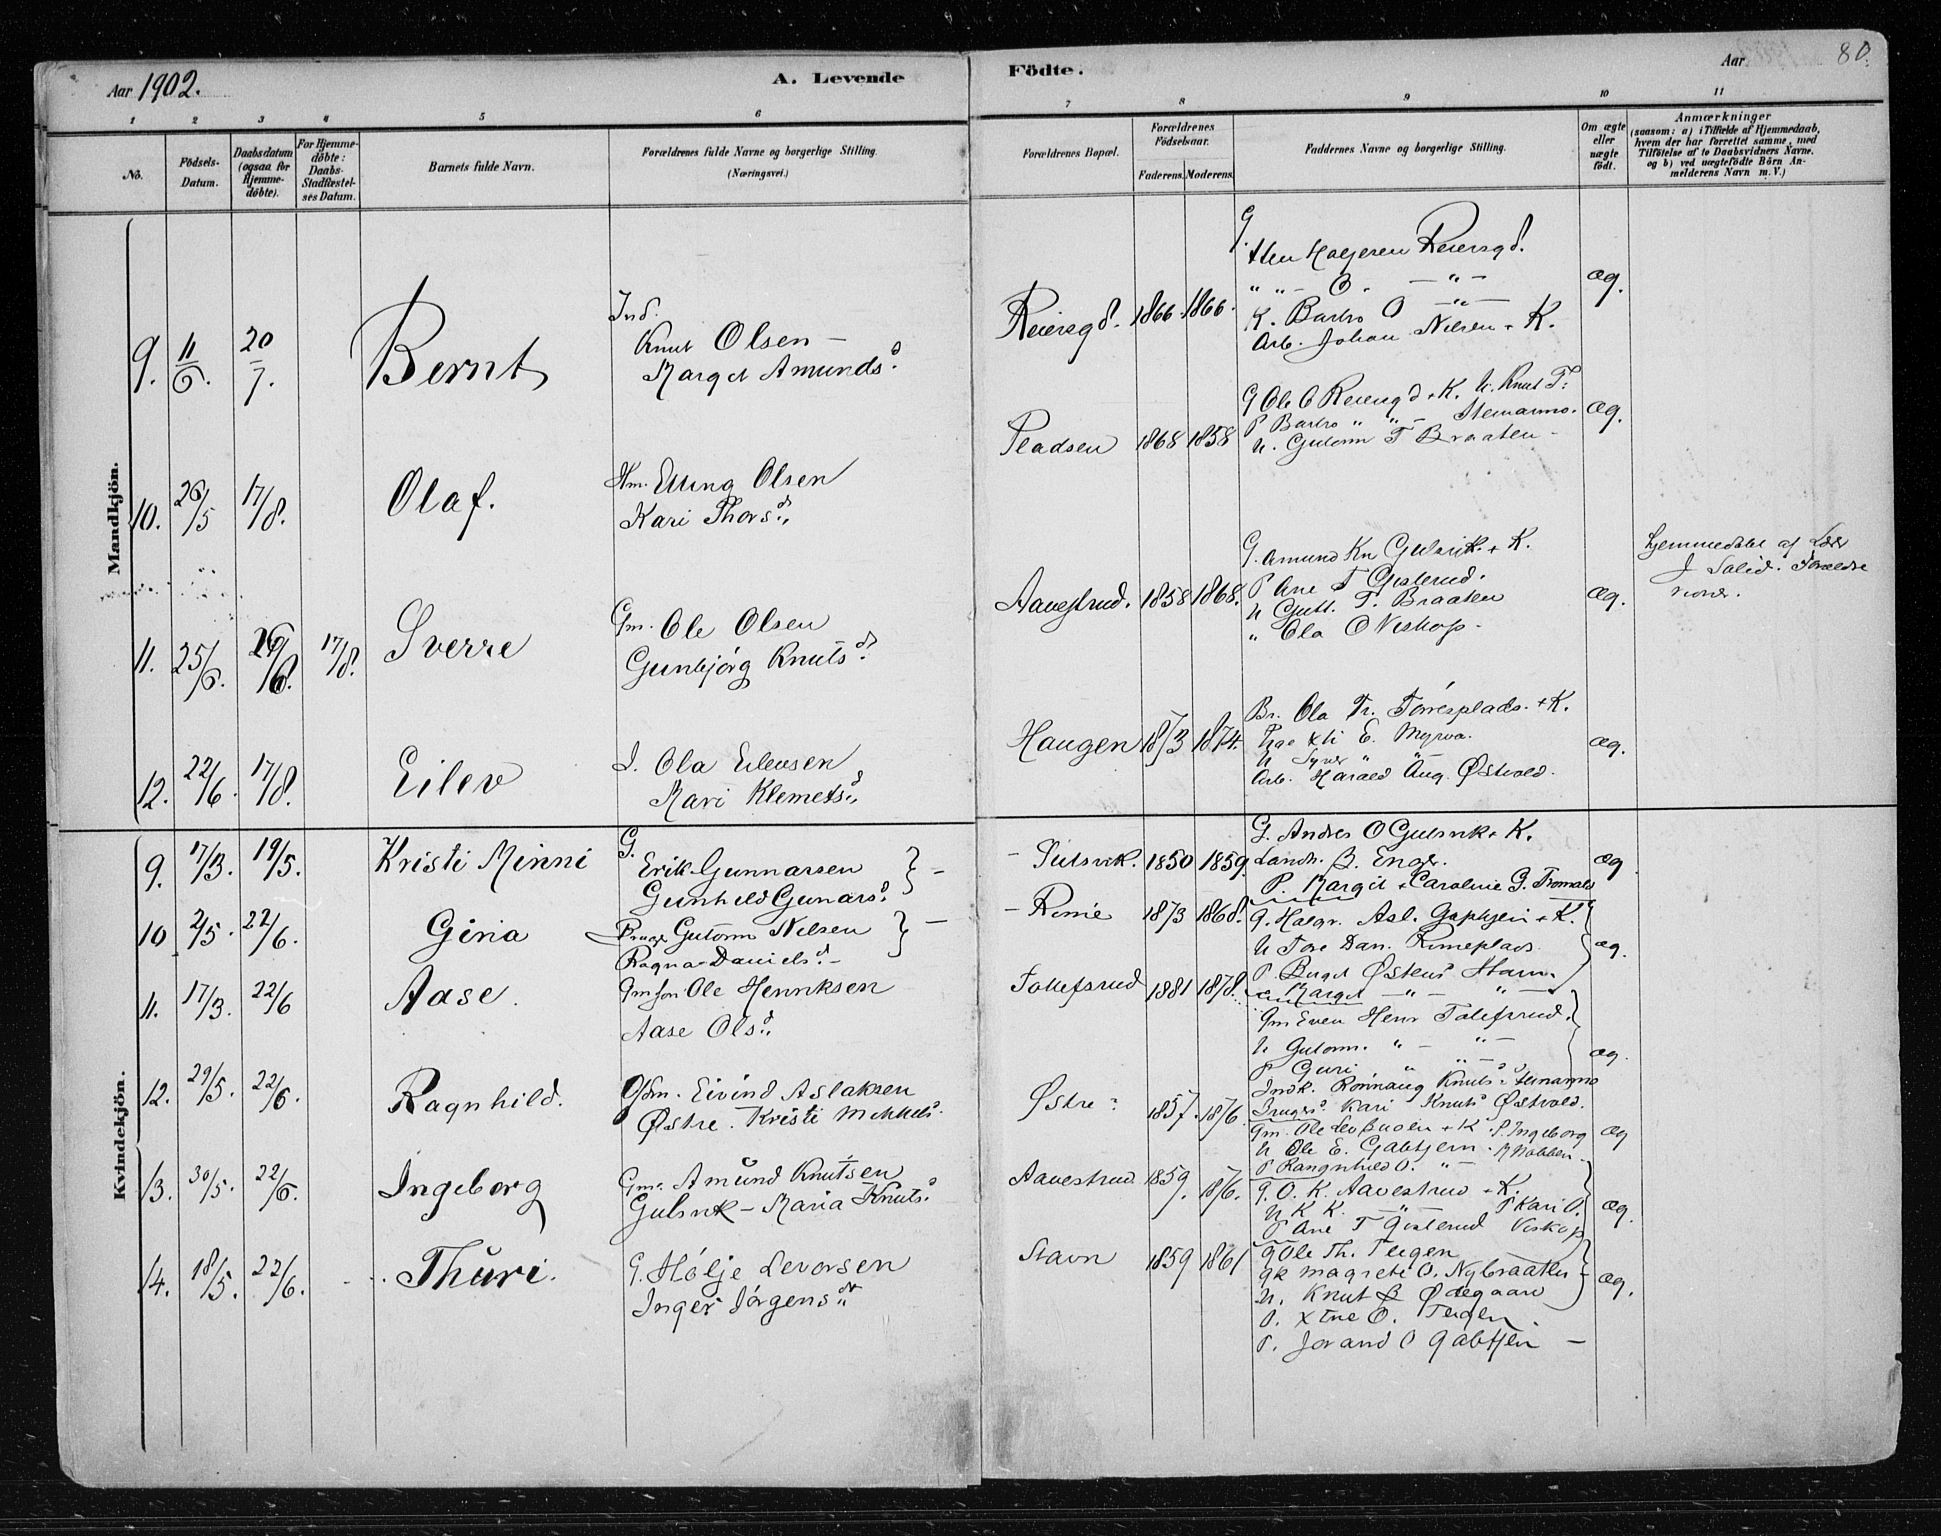 Aar 1902.
A. Levende
Födte.
Aar
80.
1 2 3 4 5 6 7 8 9 10 11
No.
Födsels-
Datum.
Daabsdatum
(ogsaa for
Hjemme-
döbte).
For Hjemme-
döbte:
Daabs-
Stadfæstel-
ses Datum.
Barnets fulde Navn.
Forældrenes fulde Navne og borgerlige Stilling.
(Næringsvei.)
Forældrenes Bopæl.
Forældrenes
Födselsaar.
Faderens. Moderens.
Faddernes Navne og borgerlige Stilling.
Om ægte
eller
uægte
födt.
Anmærkninger
(saasom: a) i Tilfælde af Hjemmedaab,
hvem der har forrettet samme, med
Tilföielse af to Daabsvidners Navne.
og b) ved uægtefödte Börn An-
melderens Navn m. V.)
Mandkjön.
9. 11/6. 20/7. Bernt
Ind.
Knut Olsen –
Marget Amundsd.
Reiersgd. 1866. 1866.
G.
Sten Holgersen Reiersgd.
K. Barbro O – " –
Arb. Johan Nilsen + K.
æg.
10. 26/5 17/8. Olaf.
Hm. Elling Olsen
Kari Thorsd.
Pladsen 1868 1858
G Ole O Reiersgd + K. U. Knut T.
P Barbro " " – Stemanno.
U. Gutorm T Braaten –
æg.
11. 25/6. 26/6. 17/8. Sverre
Gm. Ole Olsen
Gunbjørg Knutsd.
Aavestrud. 1858 1868.
G. Amund Kn Gulsvik. + K.
P Ane T Gisterud.
U Gutt. T. Braaten
" Ola O Viskop –
æg.
Hjemmedøbt af Lær
J. Solid. Forældre
12. 22/6. 17/8. Eilev
I. Ola Eilevsen
Mari Klemetsd.
Haugen 1873 1874.
Br. Ola Tr. Torresplads. + K.
Pige Kli E. Myrva.
U Syver " "
Arb. Harald Aug. Østvold.
æg.
Kvindekjön.
9. 17/3. 19/5. Kristi Minni
G.
Erik Gunnarsen
Gunhild Gunarsd. } –
– Gulsvik. 1850 1859.
G. Andres O Gulsvik + K.
Landh. B. Enger.
P. Margit + Caroline G. Tromald
æg
10 2/5. 22/6. Gina
Gutorm Nilsen
Ragna Danielsd. – } –
– Rime 1873 1868.
G. Halgr. Asl. Gaptjern + K.
U Tore Dan. Rimeplads.
P. Birgit Østens Stavn
æg.
11. 17/3. 22/6 Aase.
Gm søn Ole Henriksen
Aase Olsd.
Tollefsrud 1881 1878.
" Marget – " – " –
Gm Even Henr Tolefsrud.
U Gutorm. " – " –
P Guri " " –
æg.
12. 29/5. 22/6. Ragnhild.
Gfdm. Eivind Aslaksen
Østre. Kristi Mikkelsd.
Østre 1857. 1876.
Indk. Rønnaug Knutsd Stemanno
Kari Knuts Østvold.
Gm. Ole Lev Buolen + K. P. Ingeborg
U Ole E. Gabtjern. K Nabben –
P Rangnhild O. " –
æg
13. 30/5. 22/6. Ingeborg
Gm. Amund Knutsen
Gulsvik – Maria Knutsd.
Aavestrud 1859. 1876.
G. O. K. Aavestrud + K.
U K K. – " – P Kari O.
P Ane T Gisterud Viskop
æg.
14. 18/5. 22/6. Thuri.
G. Hölje Levorsen
Inger Jörgensdr.
Stavn 1859 1861
G Ole Th. Teigen
Gk Magrete O. Nybraaten
U. Knut B Ødegaard
P. Xtne O. Teigen.
P. Jorand O Gabtjen –
æg.